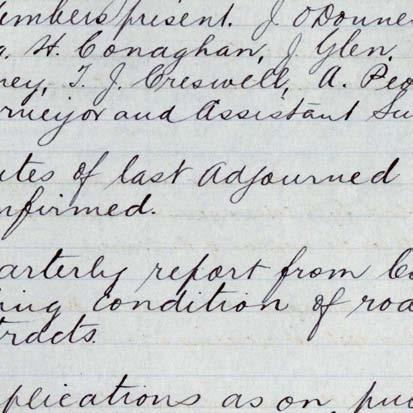 embers present. J. O'Donne
. H. Conaghan, J Glen.
ney, T. J. Creswell, A. Pea
rveyor and Assistant Su
utes of last Adjourned
nfirmed.
arterly report from Co
ing condition of roa
tracts.
plications as on pu